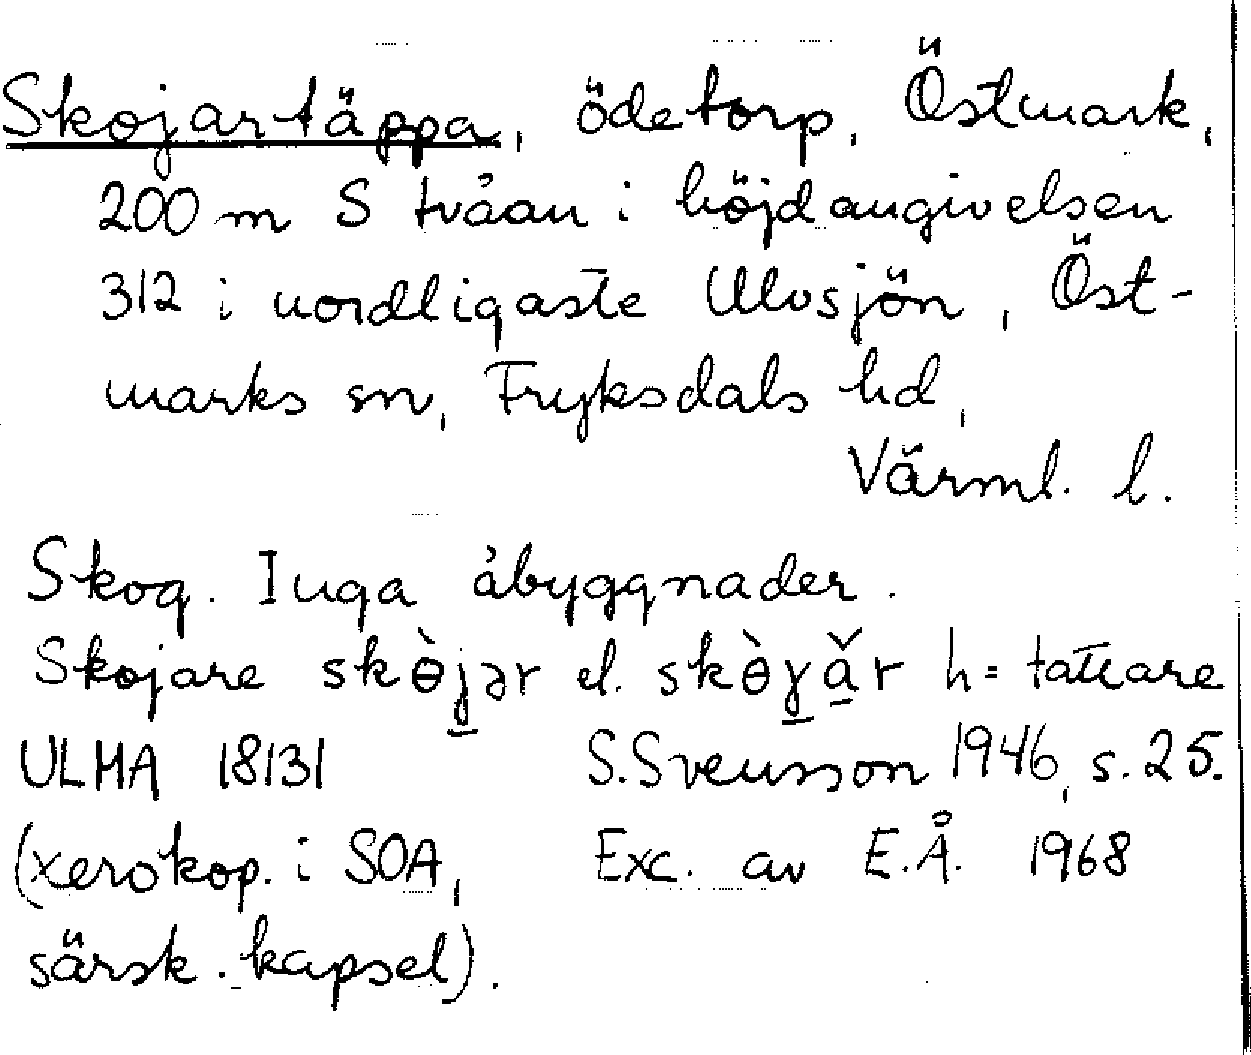 Skojartäppa, ödetorp, Östmark,
200 m S tvåan i höjdangivelsen
312 i nordligaste Ulvsjön, Öst-
marks sn, Fryksdals hd,
Värml. l.
Skog. Inga åbyggnader.
Skojare skɵ̀jər el. skɵ̀γǎr h = tattare
ULMA 18131 S. Svensson 1946, s. 25.
(xerokop. i SOA, Exc. av E.Å. 1968
särsk. kapsel).